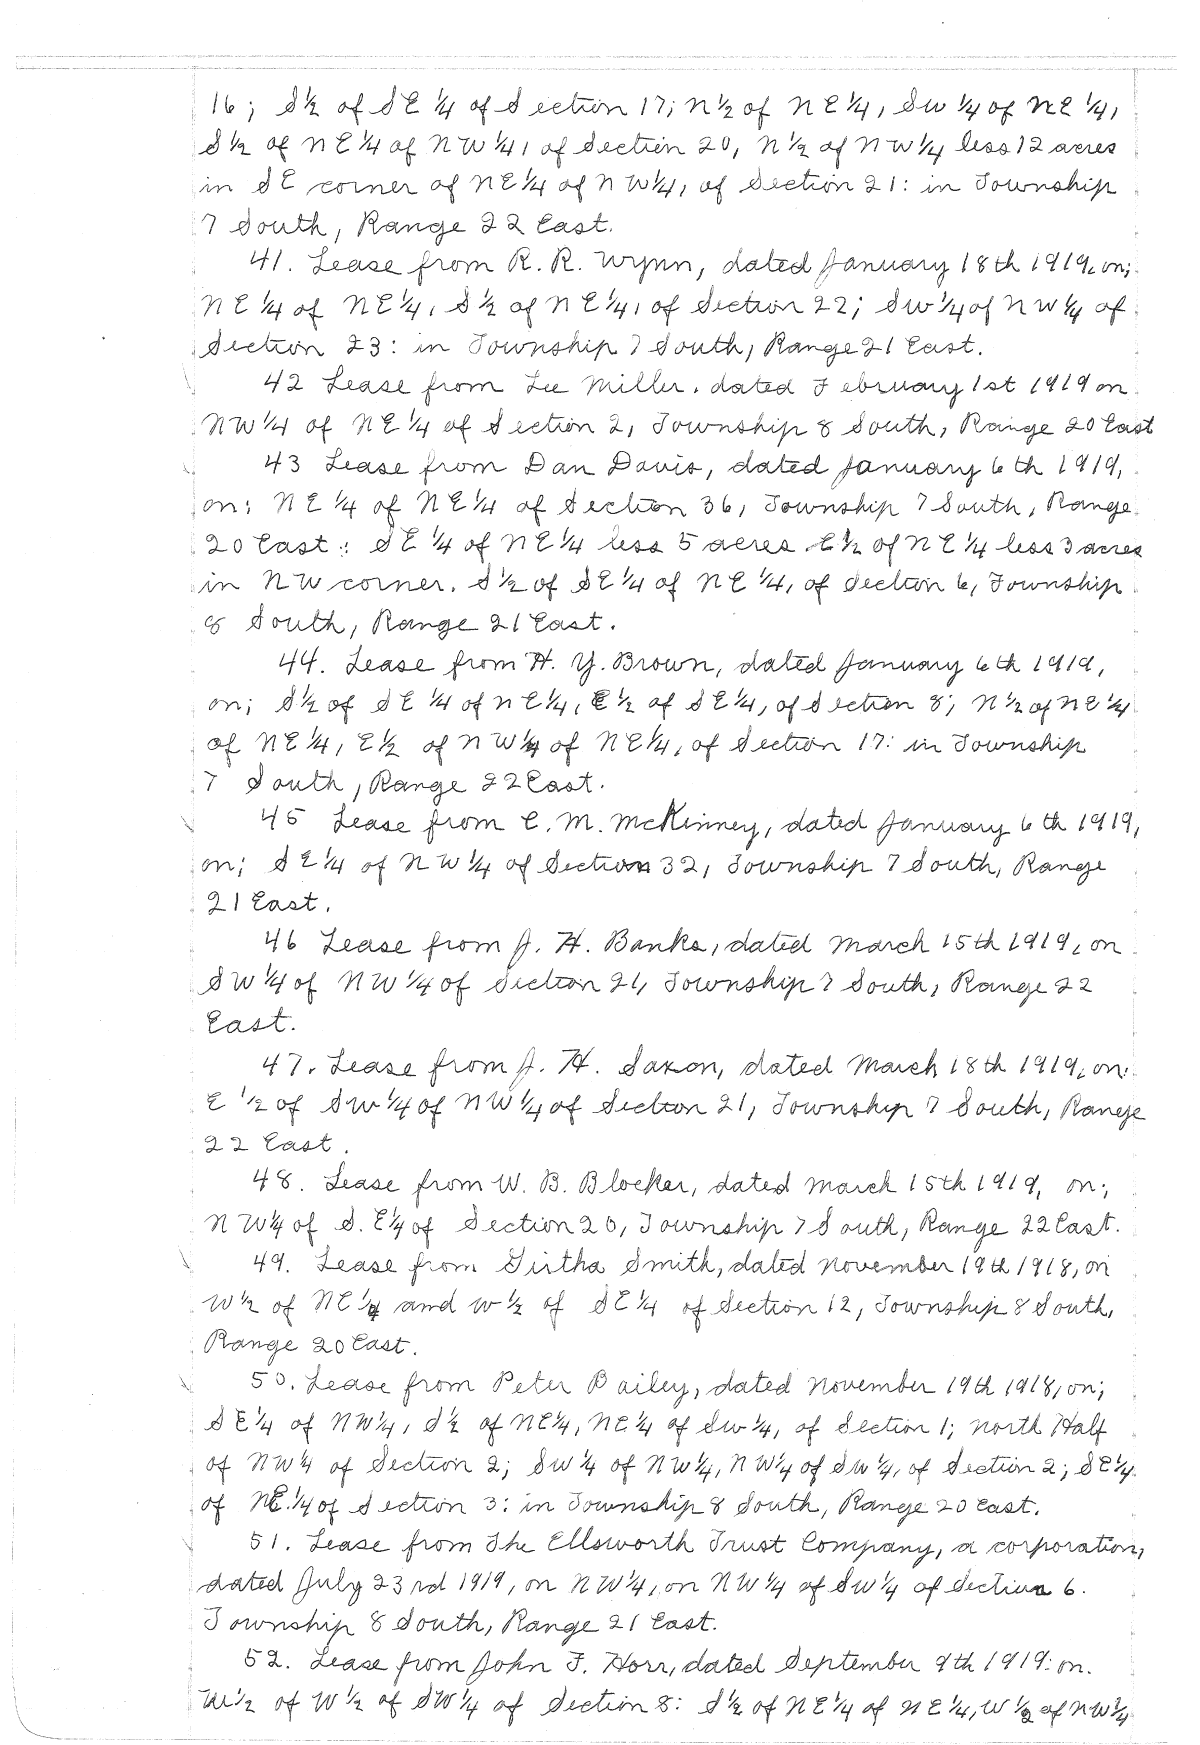 16; S½ of SE ¼ of Section 17; N½ of NE¼, SW ¼ of NE ¼,
S½ of NE¼ of NW¼, of Section 20, N½ of NW¼ less 12 acres
in SE corner of NE¼ of NW¼, of Section 21: in Township
7 South, Range 22 East.
41. Lease from R. R. Wynn, dated January 18th 1919, on;
NE¼ of NE¼, S½ of NE¼, of Section 22; SW¼ of NW¼ of
Section 23: in Township 7 South, Range 21 East.
42 Lease from Lee Miller, dated February 1st 1919 on
NW¼ of NE¼ of Section 2, Township 8 South, Range 20 East
43 Lease from Dan Davis, dated January 6th 1919,
on: NE¼ of NE¼ of Section 36, Township 7 South, Range
20 East: SE¼ of NE¼ less 5 acres E½ of NE¼ less 3 acres
in NW corner. S½ of SE¼ of NE¼, of Section 6, Township
8 South, Range 21 East.
44. Lease from H. Y. Brown, dated January 6th 1919,
on; S½ of SE ¼ of NE¼, E½ of SE¼, of Section 8; N½ of NE¼
of NE¼, E½ of NW¼ of NE¼, of Section 17: in Township
7 South, Range 22 East.
45 Lease from C. M. McKinney, dated January 6th 1919,
on; SE¼ of NW¼ of Section 32, Township 7 South, Range
21 East.
46 Lease from J. H. Banks, dated March 15th 1919, on
SW¼ of NW¼ of Section 21, Township 7 South, Range 22
East.
47. Lease from J. H. Saxon, dated March 18th 1919, on:
E½ of SW¼ of NW¼ of Section 21, Township 7 South, Range
22 East.
48. Lease from W. B. Blocker, dated March 15th 1919, on;
NW¼ of S. E¼ of Section 20, Township 7 South, Range 22 East.
49. Lease from Girtha Smith, dated November 19th 1918, on
W½ of NE¼ and W½ of SE¼ of Section 12, Township 8 South,
Range 20 East.
50. Lease from Peter Bailey, dated November 19th 1918, on;
SE¼ of NW¼, S½ of NE¼, NE¼ of SW¼, of Section 1; North Half
of NW¼ of Section 2; SW¼ of NW¼, NW¼ of SW¼, of Section 2; SE¼
of NE¼ of Section 3: in Township 8 South, Range 20 East.
51. Lease from The Ellsworth Trust Company, a corporation,
dated July 23rd 1919, on NW¼, on NW¼ of SW¼ of Section 6.
Township 8 South, Range 21 East.
52. Lease from John F. Horr, dated September 9th 1919: on.
W½ of W½ of SW¼ of Section 8: S½ of NE¼ of NE¼, W½ of NW¼